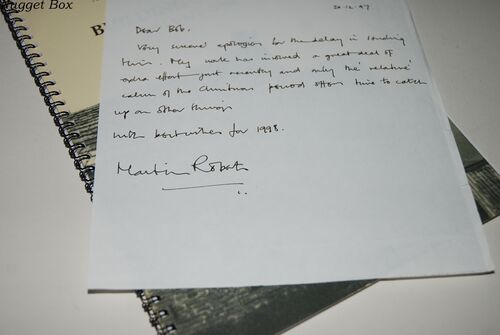 Nugget Box
B
30.12.97
Dear Bob,
Very sincere apologies for the delay in sending
this. My work has involved a great deal of
extra effort just recently and only the 'relative'
calm of the Christmas period offers time to catch
up on other things.
With best wishes for 1998.
Martin Roberts